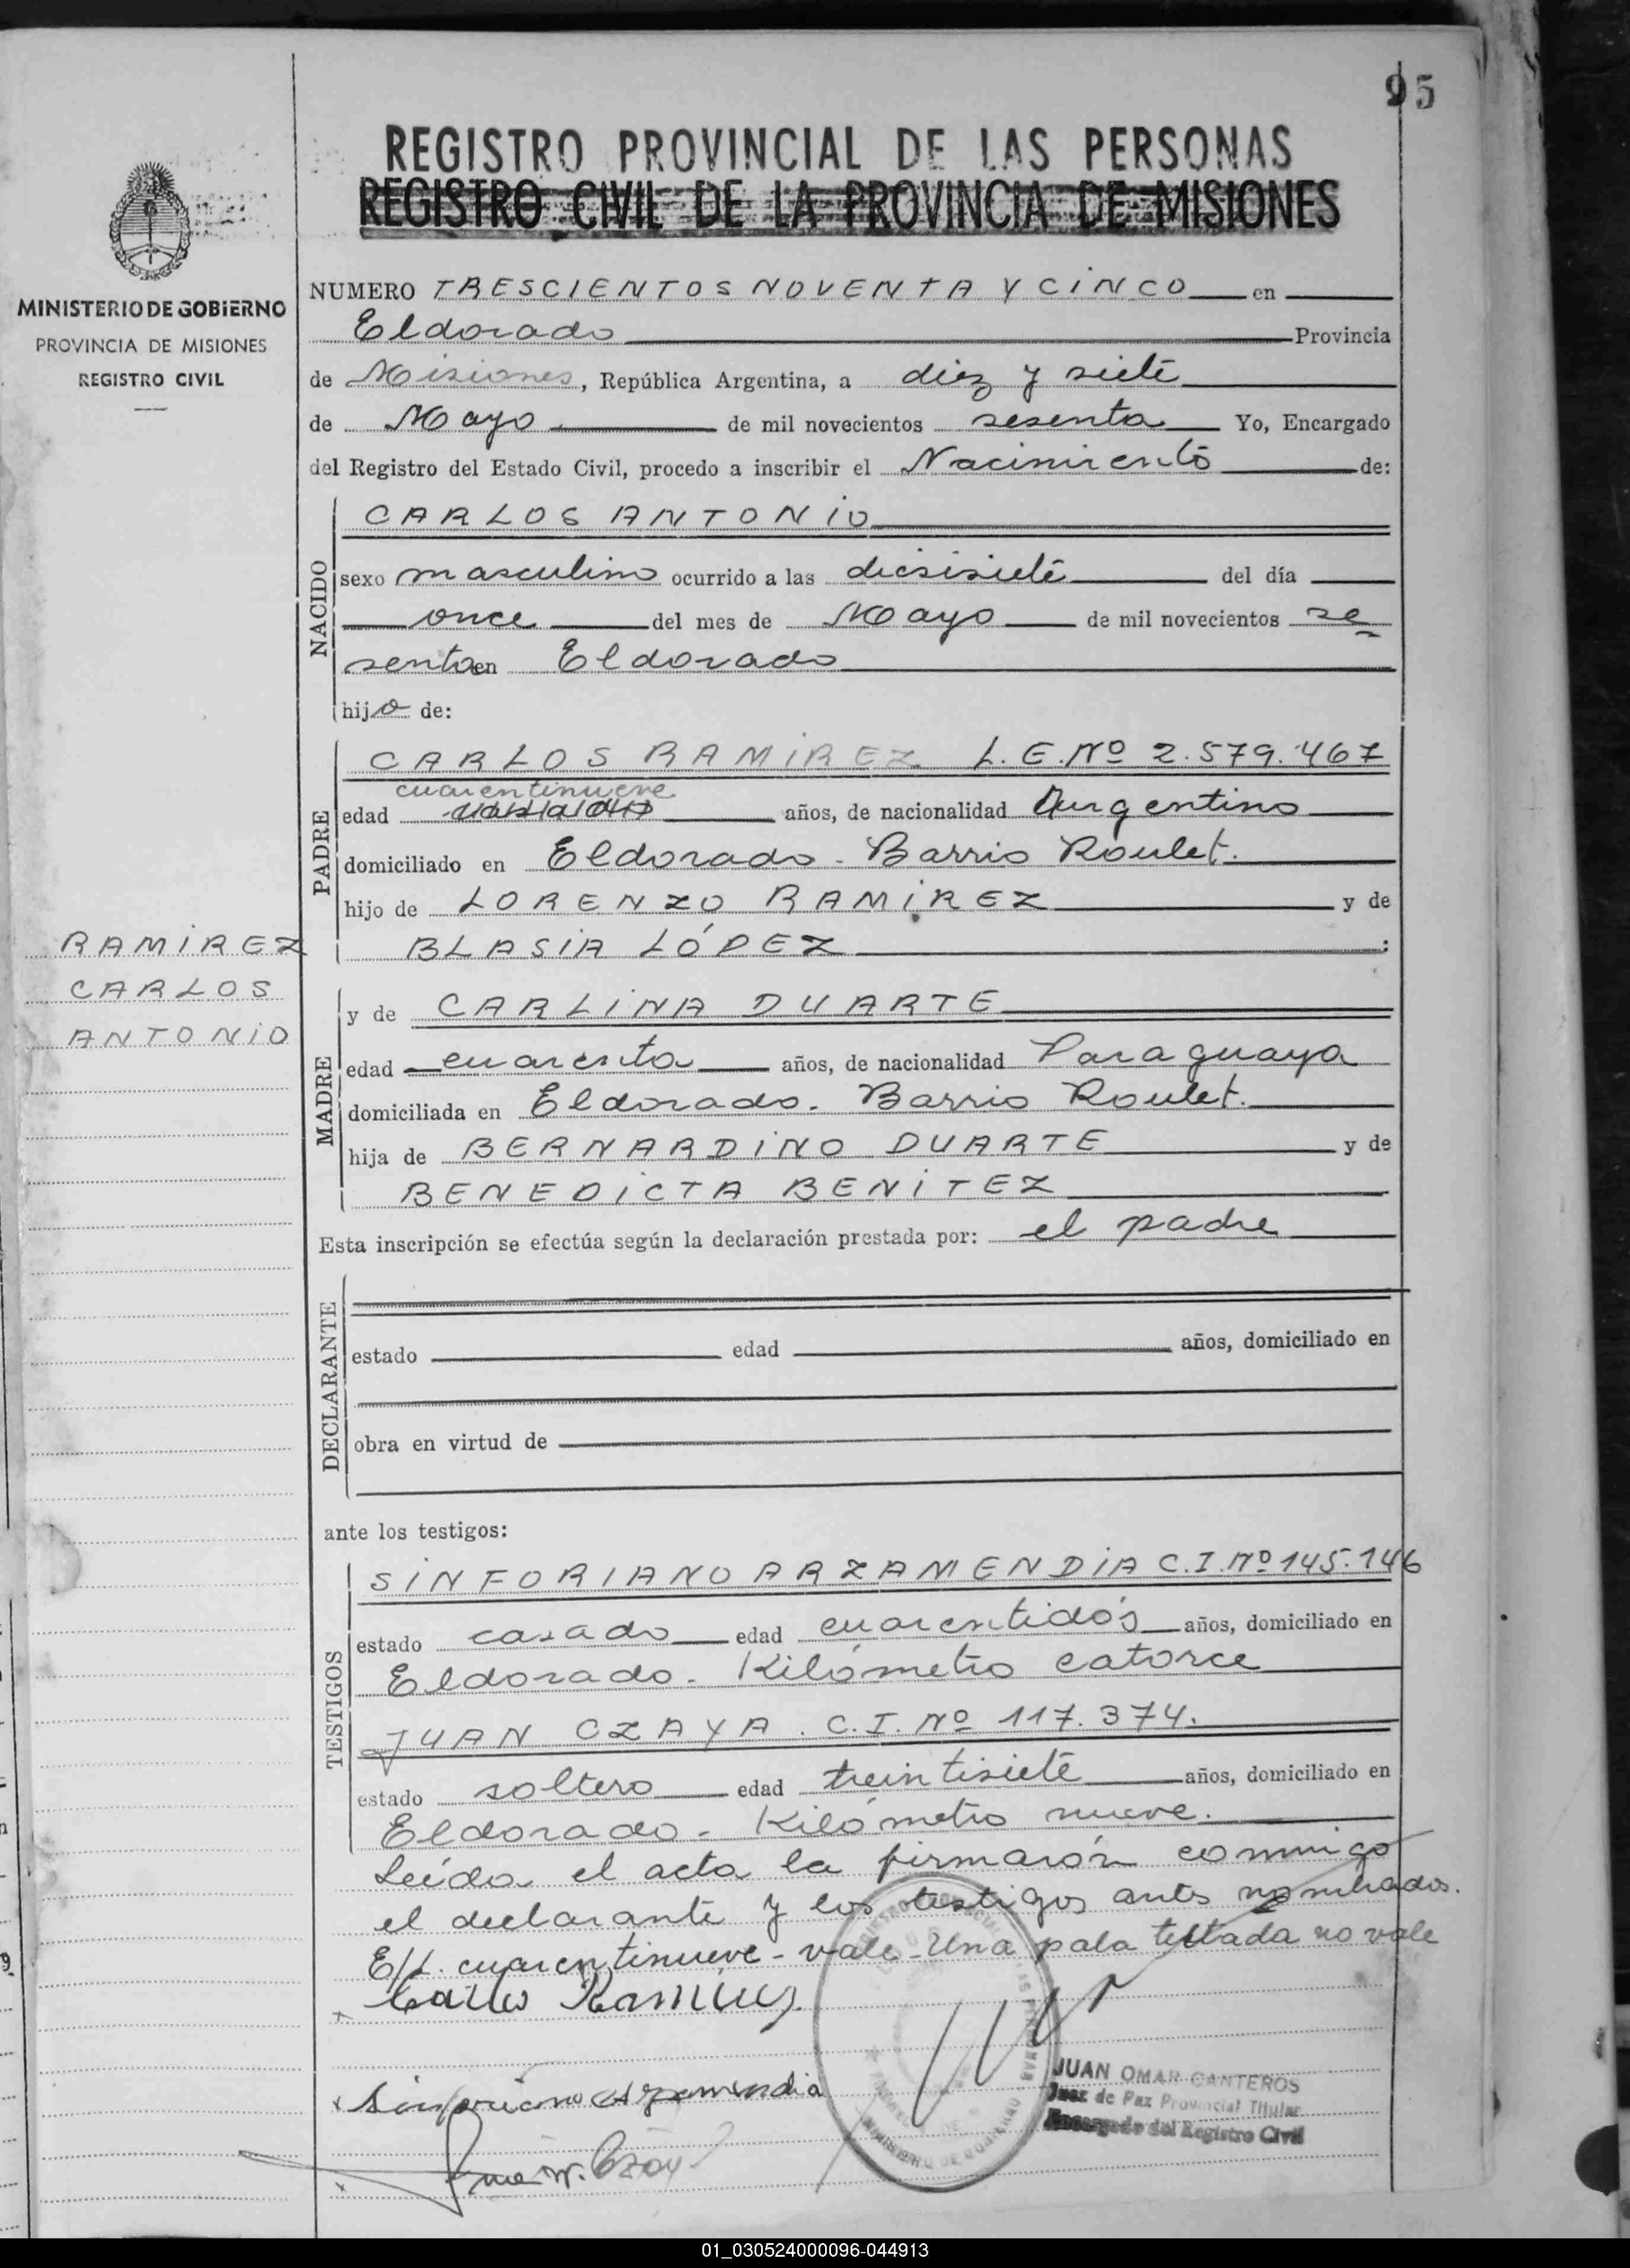 95
REGISTRO PROVINCIAL DE LAS PERSONAS
REGISTRO CIVIL DE LA PROVINCIA DE MISIONES
MINISTERIO DE GOBIERNO
PROVINCIA DE MISIONES
REGISTRO CIVIL
NUMERO TRESCIENTOS NOVENTA Y CINCO en
Eldorado Provincia
de Misiones, República Argentina, a diez y siete
de Mayo de mil novecientos sesenta Yo, Encargado
del Registro del Estado Civil, procedo a inscribir el Nacimiento de:
NACIDO
CARLOS ANTONIO
sexo masculino ocurrido a las diesisiete del día
once del mes de Mayo de mil novecientos se
senta en Eldorado
hijo de:
PADRE
CARLOS RAMIREZ L.E.Nº 2.579.467
cuarentinueve
edad años, de nacionalidad Argentino
domiciliado en Eldorado - Barrio Roulet.
hijo de LORENZO RAMIREZ y de
BLASIA LÓPEZ :
RAMIREZ
CARLOS
ANTONIO
MADRE
y de CARLINA DUARTE
edad cuarenta años, de nacionalidad Paraguaya
domiciliada en Eldorado. Barrio Roulet.
hija de BERNARDINO DUARTE y de
BENEDICTA BENITEZ
Esta inscripción se efectúa según la declaración prestada por: el padre
DECLARANTE
estado edad años, domiciliado en
obra en virtud de
ante los testigos:
TESTIGOS
SINFORIANO ARZAMENDIA C.I.Nº 145.146
estado casado edad cuarentidós años, domiciliado en
Eldorado. Kilómetro catorce
JUAN CZAYA. C.I. Nº 117.374.
estado soltero edad treintisiete años, domiciliado en
Eldorado - Kilómetro nueve.
Leída el acta la firmarón conmigo
el declarante y los testigos ants nombrados.
E/L. cuarentinueve - vale - Una pala testada no vale
Carlos Ramirez
Sinforiano Arzamendia
JUAN OMAR CANTEROS
Juez de Paz Provincial Titular
Encargado del Registro Civil
MINISTERIO DE GOBIERNO
01_030524000096-044913